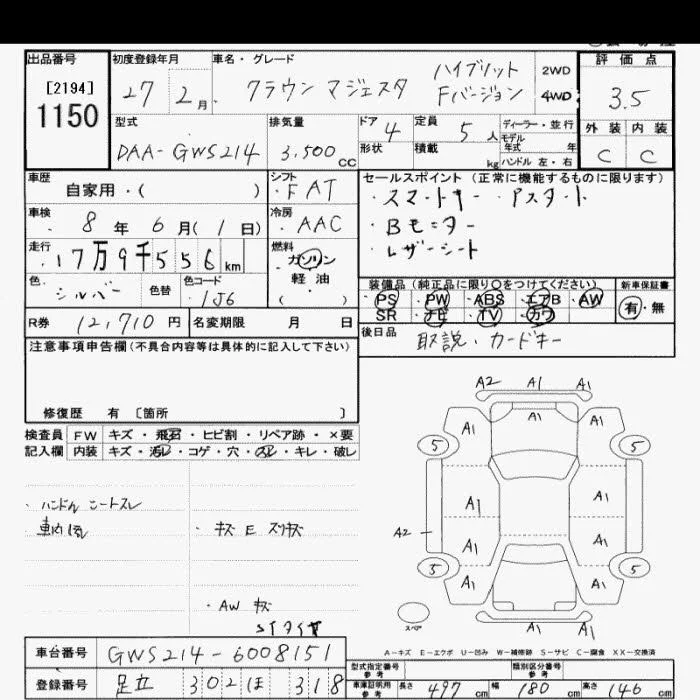 出品番号
[2194]
1150
初度登録年月
27 2月
車名・グレード
クラウン マジェスタ ハイブリット Fバージョン
2WD
4WD
評価点
3.5
外装 内装
C C
型式
DAA-GWS214
排気量
3,500cc
ドア
4
形状
定員
5人
積載
kg
ディーラー・並行
モデル年式 年
ハンドル 左・右
車歴
自家用・( )
シフト
・FAT
車検
・8年6月(1日)
冷房
・AAC
走行
・17万9千556km
燃料
ガソリン
軽油
・( )
色
・シルバー
色替
色コード
・1J6
セールスポイント(正常に機能するものに限ります)
・スマートキー ・Pスタート
・Bモニター
・レザーシート
装備品(純正品に限り○をつけてください)
・PS ・PW ・ABS ・エアB ・AW
SR ・ナビ ・TV ・カワ
新車保証書
有・無
R券 12,710円
名変期限 月 日
後日品
取説・カードキー
注意事項申告欄(不具合内容等は具体的に記入して下さい)
修復歴 有 〔箇所 〕
検査員記入欄
FW キズ・飛石・ヒビ割・リペア跡・×要
内装 キズ・汚レ・コゲ・穴・スレ・キレ・破レ
・ハンドル シートスレ
・車内
・キズ E スリキズ
・AW キズ
A2 A1 A1
A1
A1 A1
5 5
A1 A1
A2
A1 A1
5 5
A1 A1 A1
A1 A1
スペア
A-キズ E-エクボ U-凹み W-補修跡 S-サビ C-腐食 XX-交換済
車台番号 GWS214-6008151
登録番号 足立 302 ほ 318
型式指定番号 参考
類別区分番号 参考
車庫証明用 参考
長さ 497cm 幅 180cm 高さ 146cm